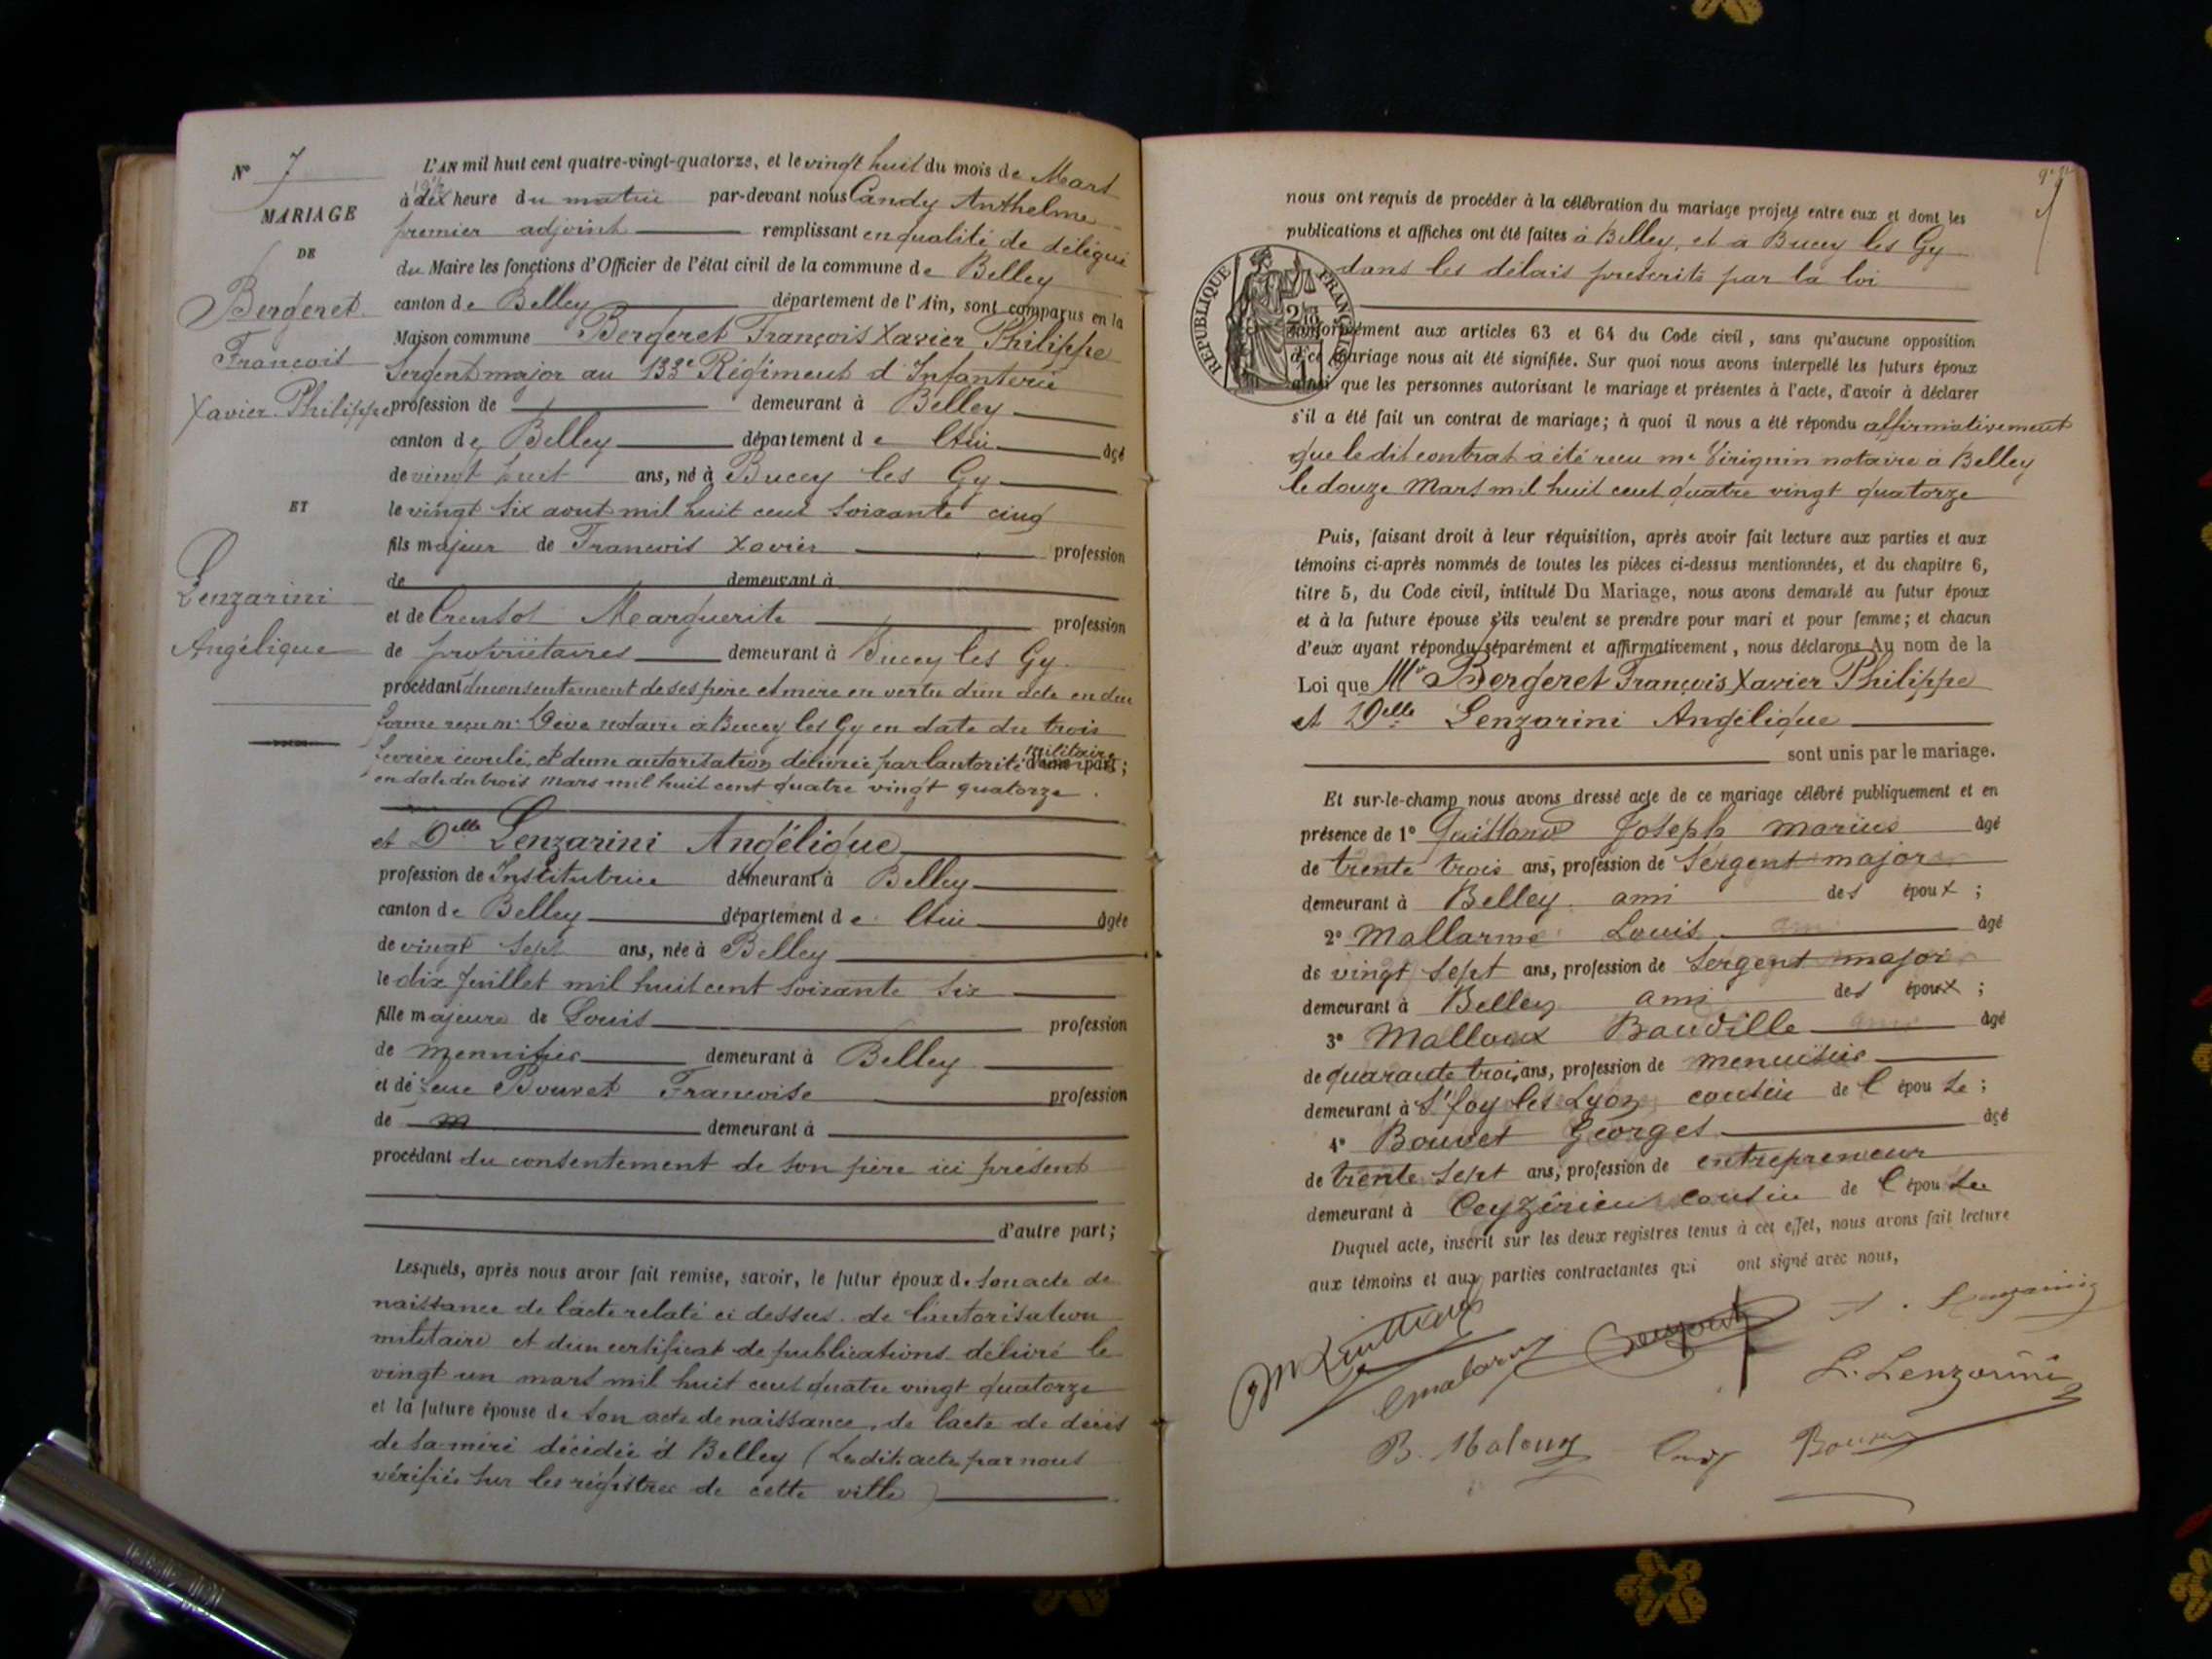 N° 7
MARIAGE
DE
Bergeret
François
Xavier Philippe
ET
Lenzarini
Angélique
L'AN mil huit cent quatre-vingt-quatorze, et le vingt huit du mois de Mars
à dix heure du matin par-devant nous Candy Anthelme
premier adjoint remplissant en qualité de délégué
du Maire les fonctions d'Officier de l'état civil de la commune de Belley
canton de Belley département de l'Ain, sont comparus en la
Maison commune Bergeret François Xavier Philippe
Sergent major au 133e Régiment d'Infanterie
profession de demeurant à Belley
canton de Belley département de l'Ain âgé
de vingt huit ans, né à Bucey les Gy
le vingt six aout mil huit cent soixante cinq
fils majeur de François Xavier profession
de demeurant à
et de Creusot Marguerite profession
de propriétaires demeurant à Bucey les Gy
procédant du consentement de ses père et mère en vertu d'un acte en due
forme reçu me notaire à Bucey les Gy en date du trois
février écoulé, et d'une autorisation délivrée par l'autorité militaire d'une part;
en date du trois mars mil huit cent quatre vingt quatorze.
et Delle Lenzarini Angélique
profession de Institutrice demeurant à Belley
canton de Belley département de l'Ain âgée
de vingt sept ans, née à Belley
le dix Juillet mil huit cent soixante six
fille majeure de Louis profession
de menuisier demeurant à Belley
et de feue Bouvet Françoise profession
de m demeurant à
procédant du consentement de son père ici présent
d'autre part;
Lesquels, après nous avoir fait remise, savoir, le futur époux de son acte de
naissance de l'acte relaté ci dessus. de l'autorisation
militaire et d'un certificat de publications délivré le
vingt un mars mil huit cent quatre vingt quatorze
et la future épouse de son acte de naissance, de l'acte de décès
de sa mère décédée à Belley (Ledit acte par nous
vérifiés sur les régistres de cette ville)
nous ont requis de procéder à la célébration du mariage projeté entre eux et dont les
publications et affiches ont été faites à Belley, et à Bucey les Gy
dans les délais prescrits par la loi
RÉPUBLIQUE FRANÇAISE
conformément aux articles 63 et 64 du Code civil, sans qu'aucune opposition
à ce mariage nous ait été signifiée. Sur quoi nous avons interpellé les futurs époux
ainsi que les personnes autorisant le mariage et présentes à l'acte, d'avoir à déclarer
s'il a été fait un contrat de mariage; à quoi il nous a été répondu affirmativement
que le dit contrat a été reçu me Virignin notaire à Belley
le douze Mars mil huit cent quatre vingt quatorze
Puis, faisant droit à leur réquisition, après avoir fait lecture aux parties et aux
témoins ci-après nommés de toutes les pièces ci-dessus mentionnées, et du chapitre 6,
titre 5, du Code civil, intitulé Du Mariage, nous avons demandé au futur époux
et à la future épouse s'ils veulent se prendre pour mari et pour femme; et chacun
d'eux ayant répondu séparément et affirmativement, nous déclarons Au nom de la
Loi que Mr Bergeret François Xavier Philippe
et Delle Lenzarini Angélique
sont unis par le mariage.
Et sur-le-champ nous avons dressé acte de ce mariage célébré publiquement et en
présence de 1° Joseph Marius âgé
de trente trois ans, profession de Sergent major
demeurant à Belley. ami des époux;
2° Mallarmé Louis âgé
de vingt sept ans, profession de Sergent major
demeurant à Belley ami des époux;
3° Malloux Baudille âgé
de quarante trois ans, profession de menuisier
demeurant à St foy les Lyon cousin de l'épouse;
4° Bouvet Georges âgé
de trente sept ans, profession de entrepreneur
demeurant à Ceyzérieu cousin de l'épouse
Duquel acte, inscrit sur les deux registres tenus à cet effet, nous avons fait lecture
aux témoins et aux parties contractantes qui ont signé avec nous,
L. Lenzarini
Candy Bouvet